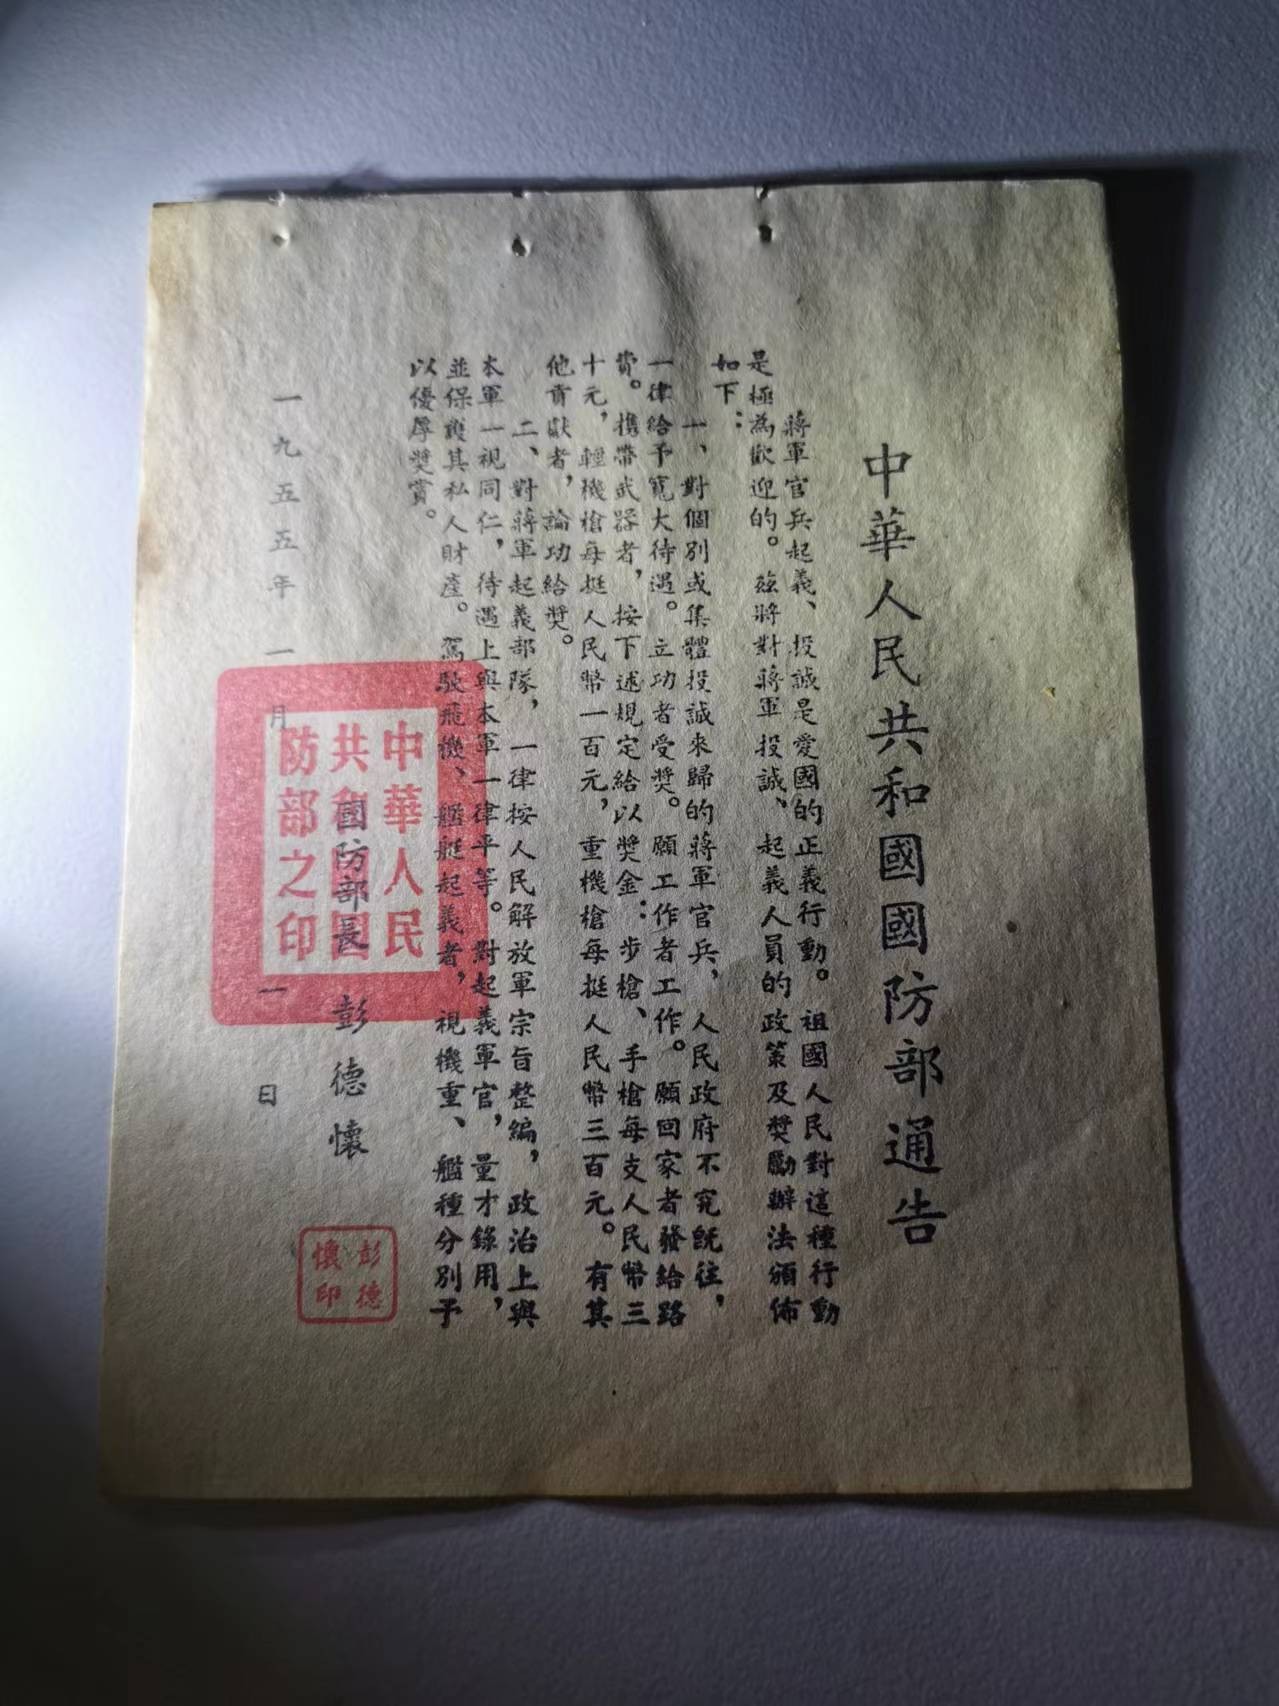 中華人民共和國國防部通告
蔣軍官兵起義、投誠是愛國的正義行動。祖國人民對這種行動
是極為歡迎的。茲將對蔣軍投誠、起義人員的政策及獎勵辦法頒佈
如下：
一、對個別或集體投誠來歸的蔣軍官兵，人民政府不究既往，
一律給予寬大待遇。立功者受獎。願工作者工作。願回家者發給路
費。攜帶武器者，按下述規定給以獎金：步槍、手槍每支人民幣三
十元，輕機槍每挺人民幣一百元，重機槍每挺人民幣三百元。有其
他貢獻者，論功給獎。
二、對蔣軍起義部隊，一律按人民解放軍宗旨整編，政治上與
本軍一視同仁，待遇上與本軍一律平等。對起義軍官，量才錄用，
並保護其私人財產。駕駛飛機、艦艇起義者，視機重、艦種分別予
以優厚獎賞。
國防部長 彭德懷
一九五五年一月一日
中華人民
共和國國
防部之印
彭德
懷印